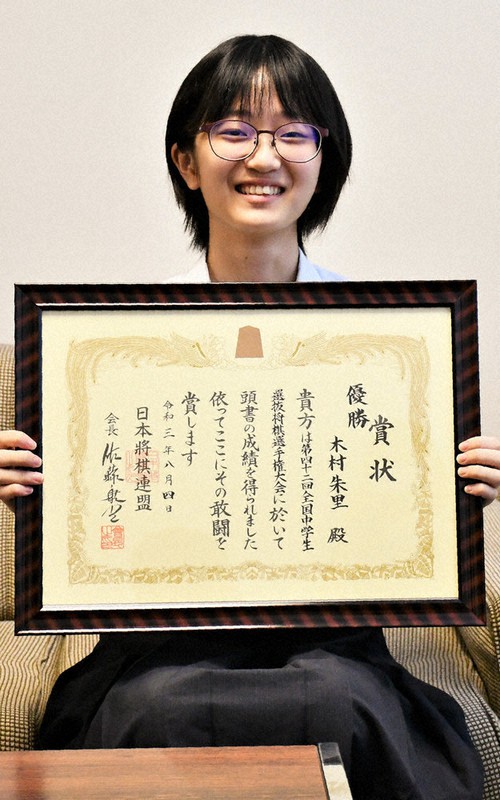 賞状
優勝
木村朱里 殿
貴方は第四十二回全国中学生
選抜将棋選手権大会に於いて
頭書の成績を得られました
依ってここにその敢闘を
賞します
令和三年八月四日
日本將棋連盟
会長 佐藤康光